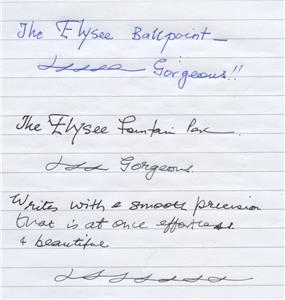 The Elysee Ballpoint —
Gorgeous!!
The Elysee Fountain Pen
Gorgeous.
Writes with a smooth precision
that is at once effortless
& beautiful